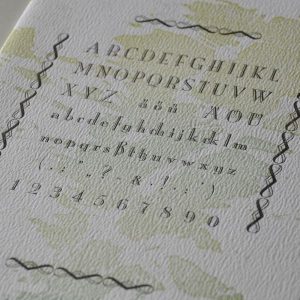 ABCDEFGHIJKL
MNOPQRSTUVW
XYZ äöü ÄÖÜ
abcdefghijklm
nopqrsßtuvwxyz
1234567890